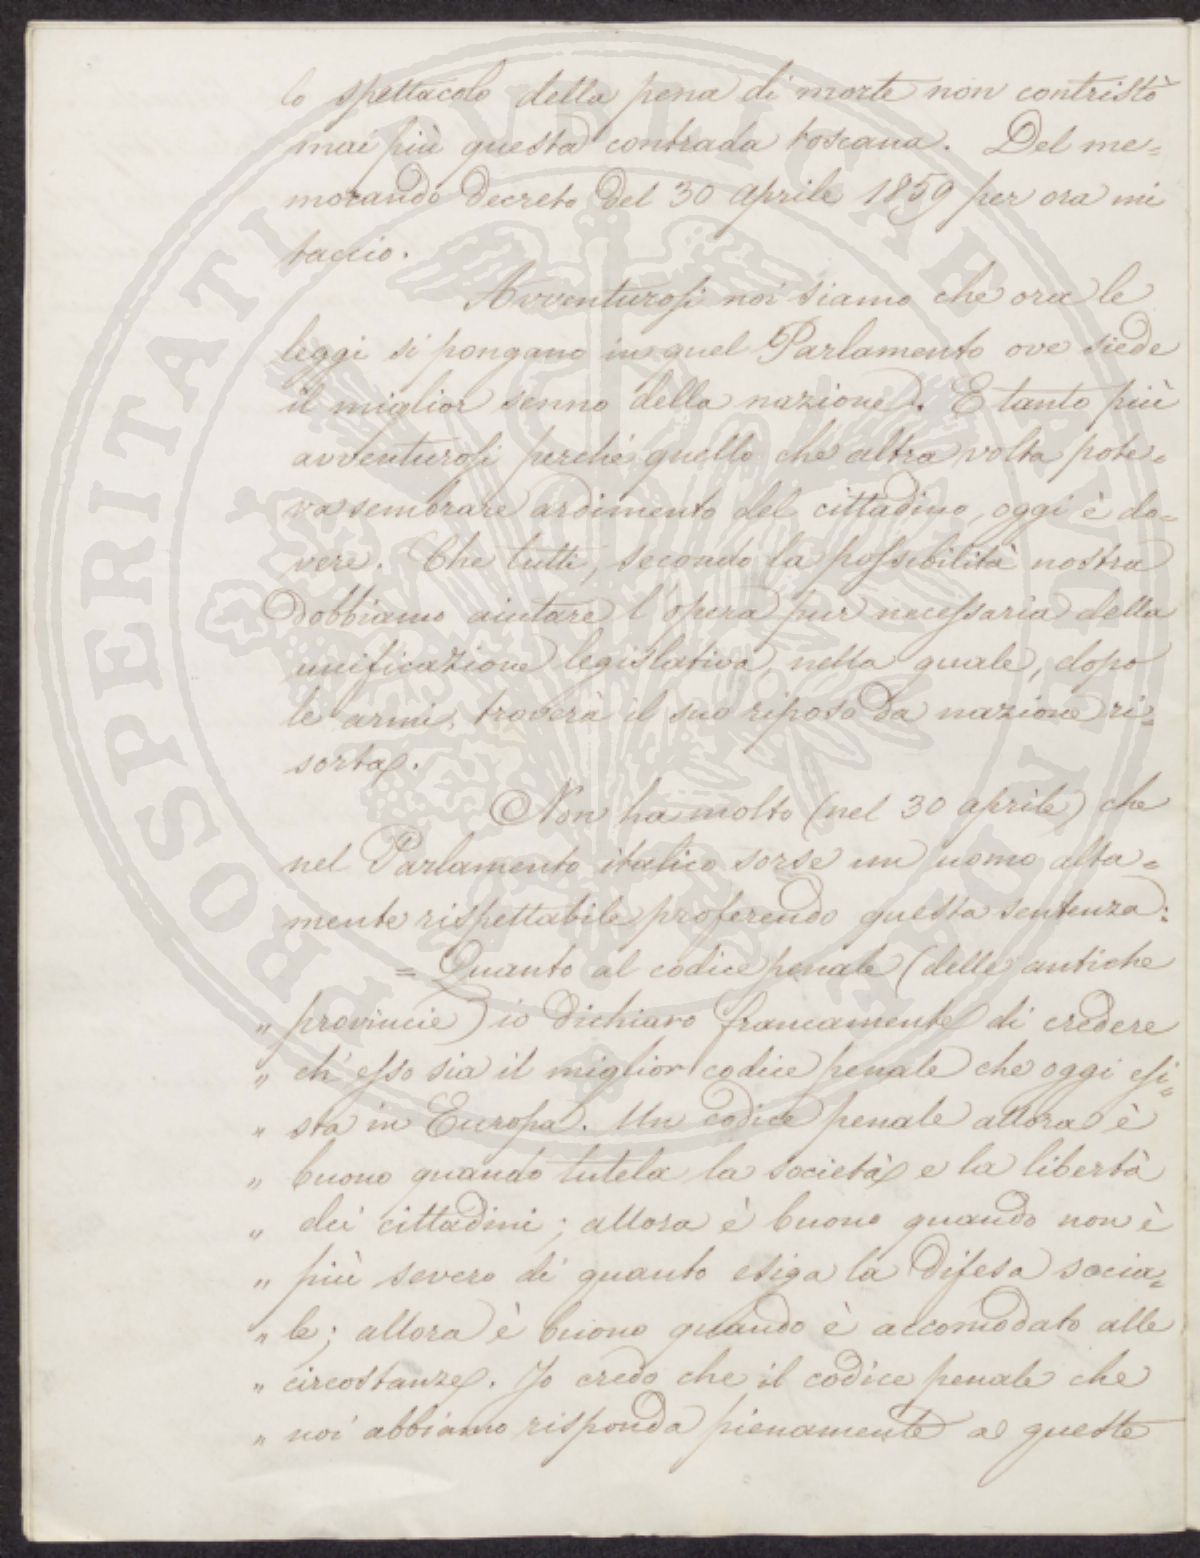 lo spettacolo della pena di morte non contristò
mai più questa contrada toscana. Del me=
morando Decreto Del 30 Aprile 1859 per ora mi
taccio.
Avventurosi noi siamo che ora le
leggi si pongano in quel Parlamento ove siede
il miglior senno della nazione. E tanto più
avventurosi perché quello che altra volta pote=
va sembrare ardimento del cittadino, oggi è do=
vere. Che tutti, secondo la possibilità nostra
Dobbiamo aiutare l'opera pur necessaria della
unificazione legislativa, nella quale, dopo
le armi, troverà il suo riposo la nazione ri=
sorta.
Non ha molto (nel 30 aprile) che
nel Parlamento italico sorse un uomo alta=
mente rispettabile proferendo questa sentenza:
= Quanto al codice penale (delle antiche
" provincie) io Dichiaro francamente di credere
" ch'esso sia il miglior codice penale che oggi esi=
" sta in Europa. Un codice penale allora è
" buono quando tutela la società e la libertà
" dei cittadini; allora è buono quando non è
" più severo di quanto esiga la Difesa socia=
" le; allora è buono quando è accomodato alle
" circostanze. Io credo che il codice penale che
" noi abbiamo risponda pienamente a queste
PROSPERITATI PVBLICAE AVGENDAE